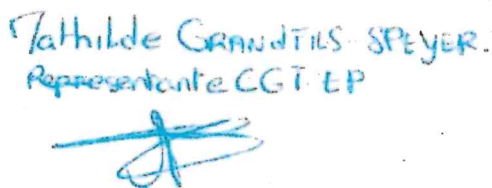 Mathilde GRANDFILS SPEYER.
Représentante CGT EP